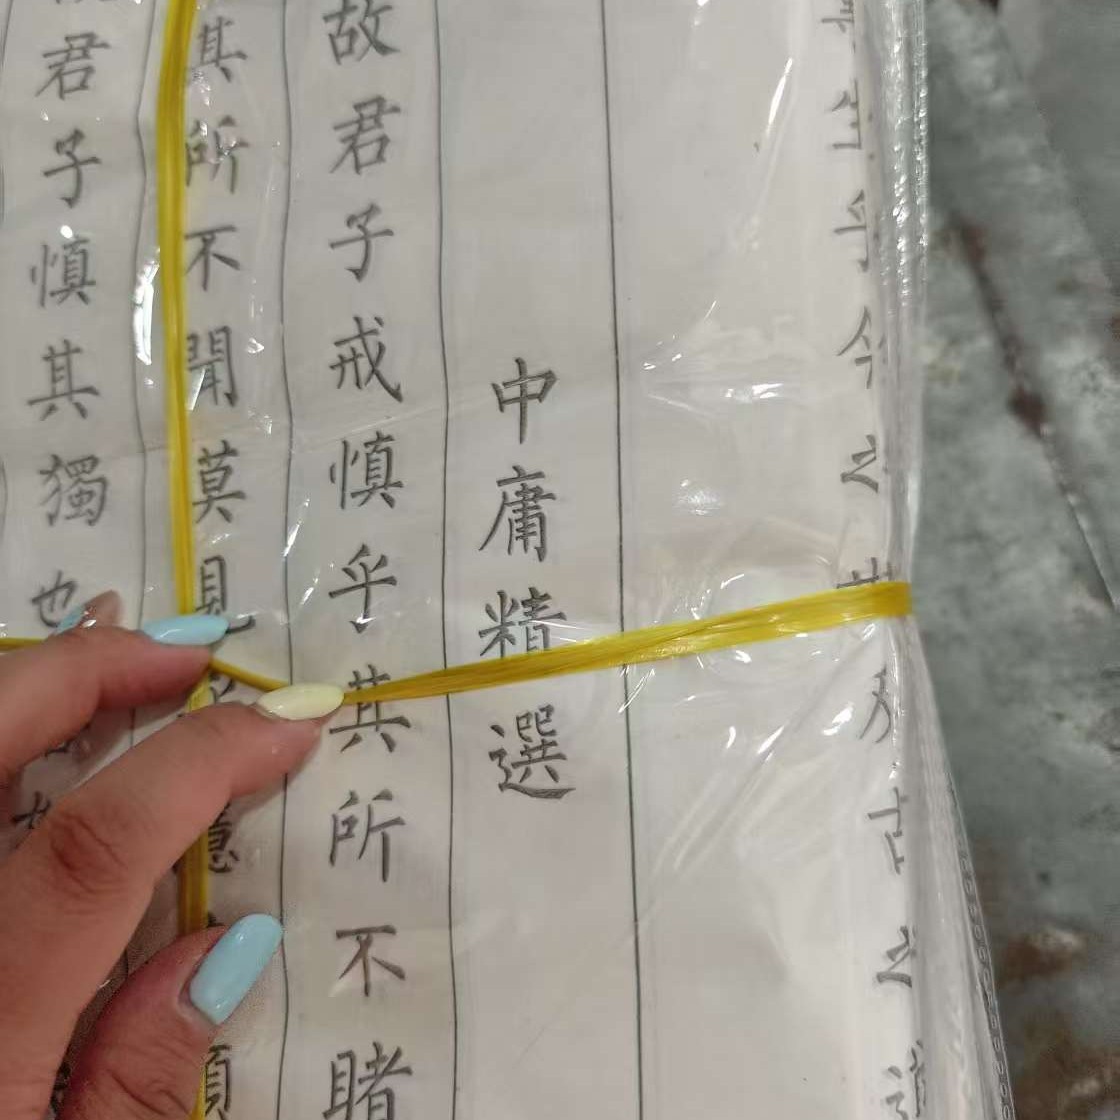 生乎今之世反古之道
中庸精選
故君子戒慎乎其所不睹
其所不聞莫見乎隱
君子慎其獨也